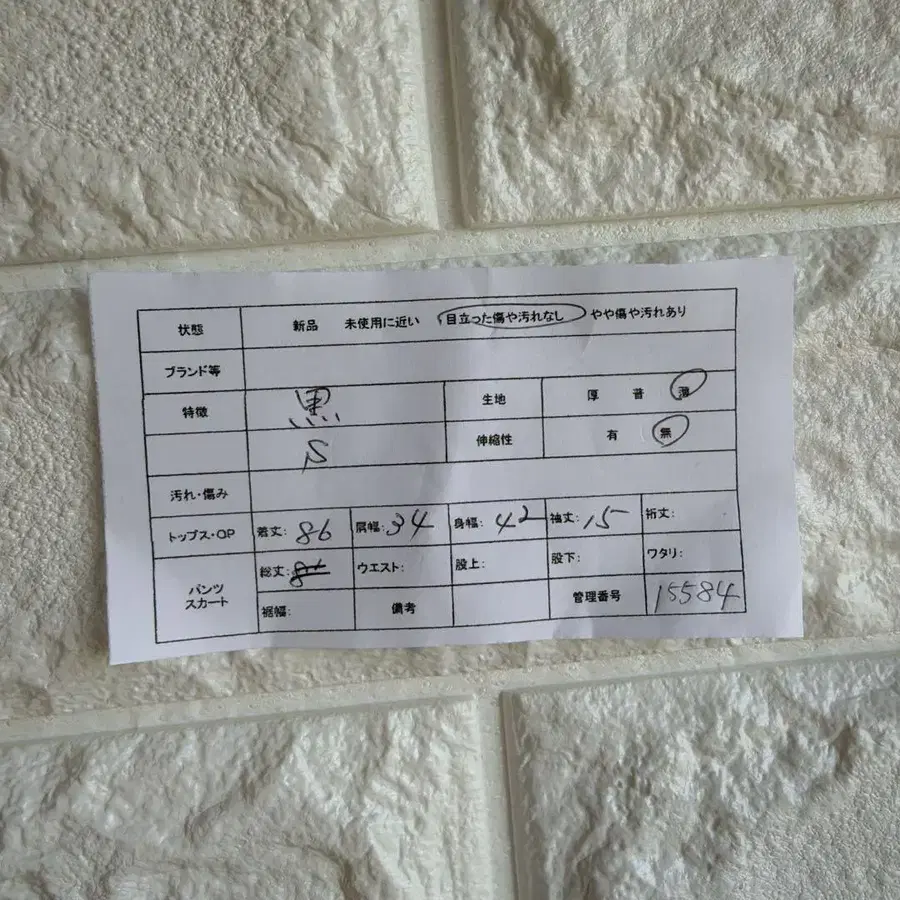 状態 新品 未使用に近い 目立った傷や汚れなし やや傷や汚れあり
ブランド等
特徴 黒 生地 厚 普 薄
S 伸縮性 有 無
汚れ・傷み
トップス・OP 着丈: 86 肩幅: 34 身幅: 42 袖丈: 15 裄丈:
パンツ スカート 総丈: ウエスト: 股上: 股下: ワタリ:
裾幅: 備考 管理番号 15584